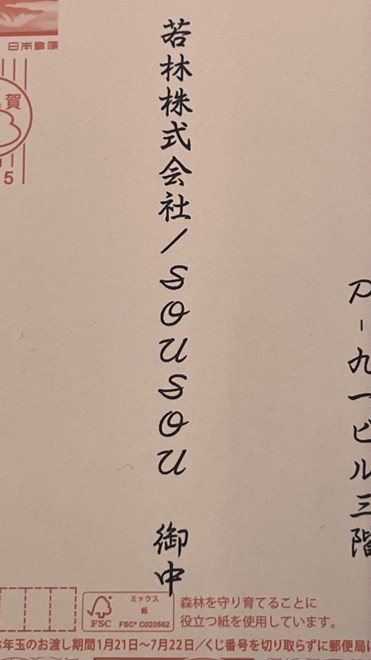 日本郵便
賀
5
P-九一ビル三階
若林株式会社/SOUSOU 御中
FSC
ミックス
紙
FSC® C020582
森林を守り育てることに
役立つ紙を使用しています。
年玉のお渡し期間1月21日~7月22日/くじ番号を切り取らずに郵便局